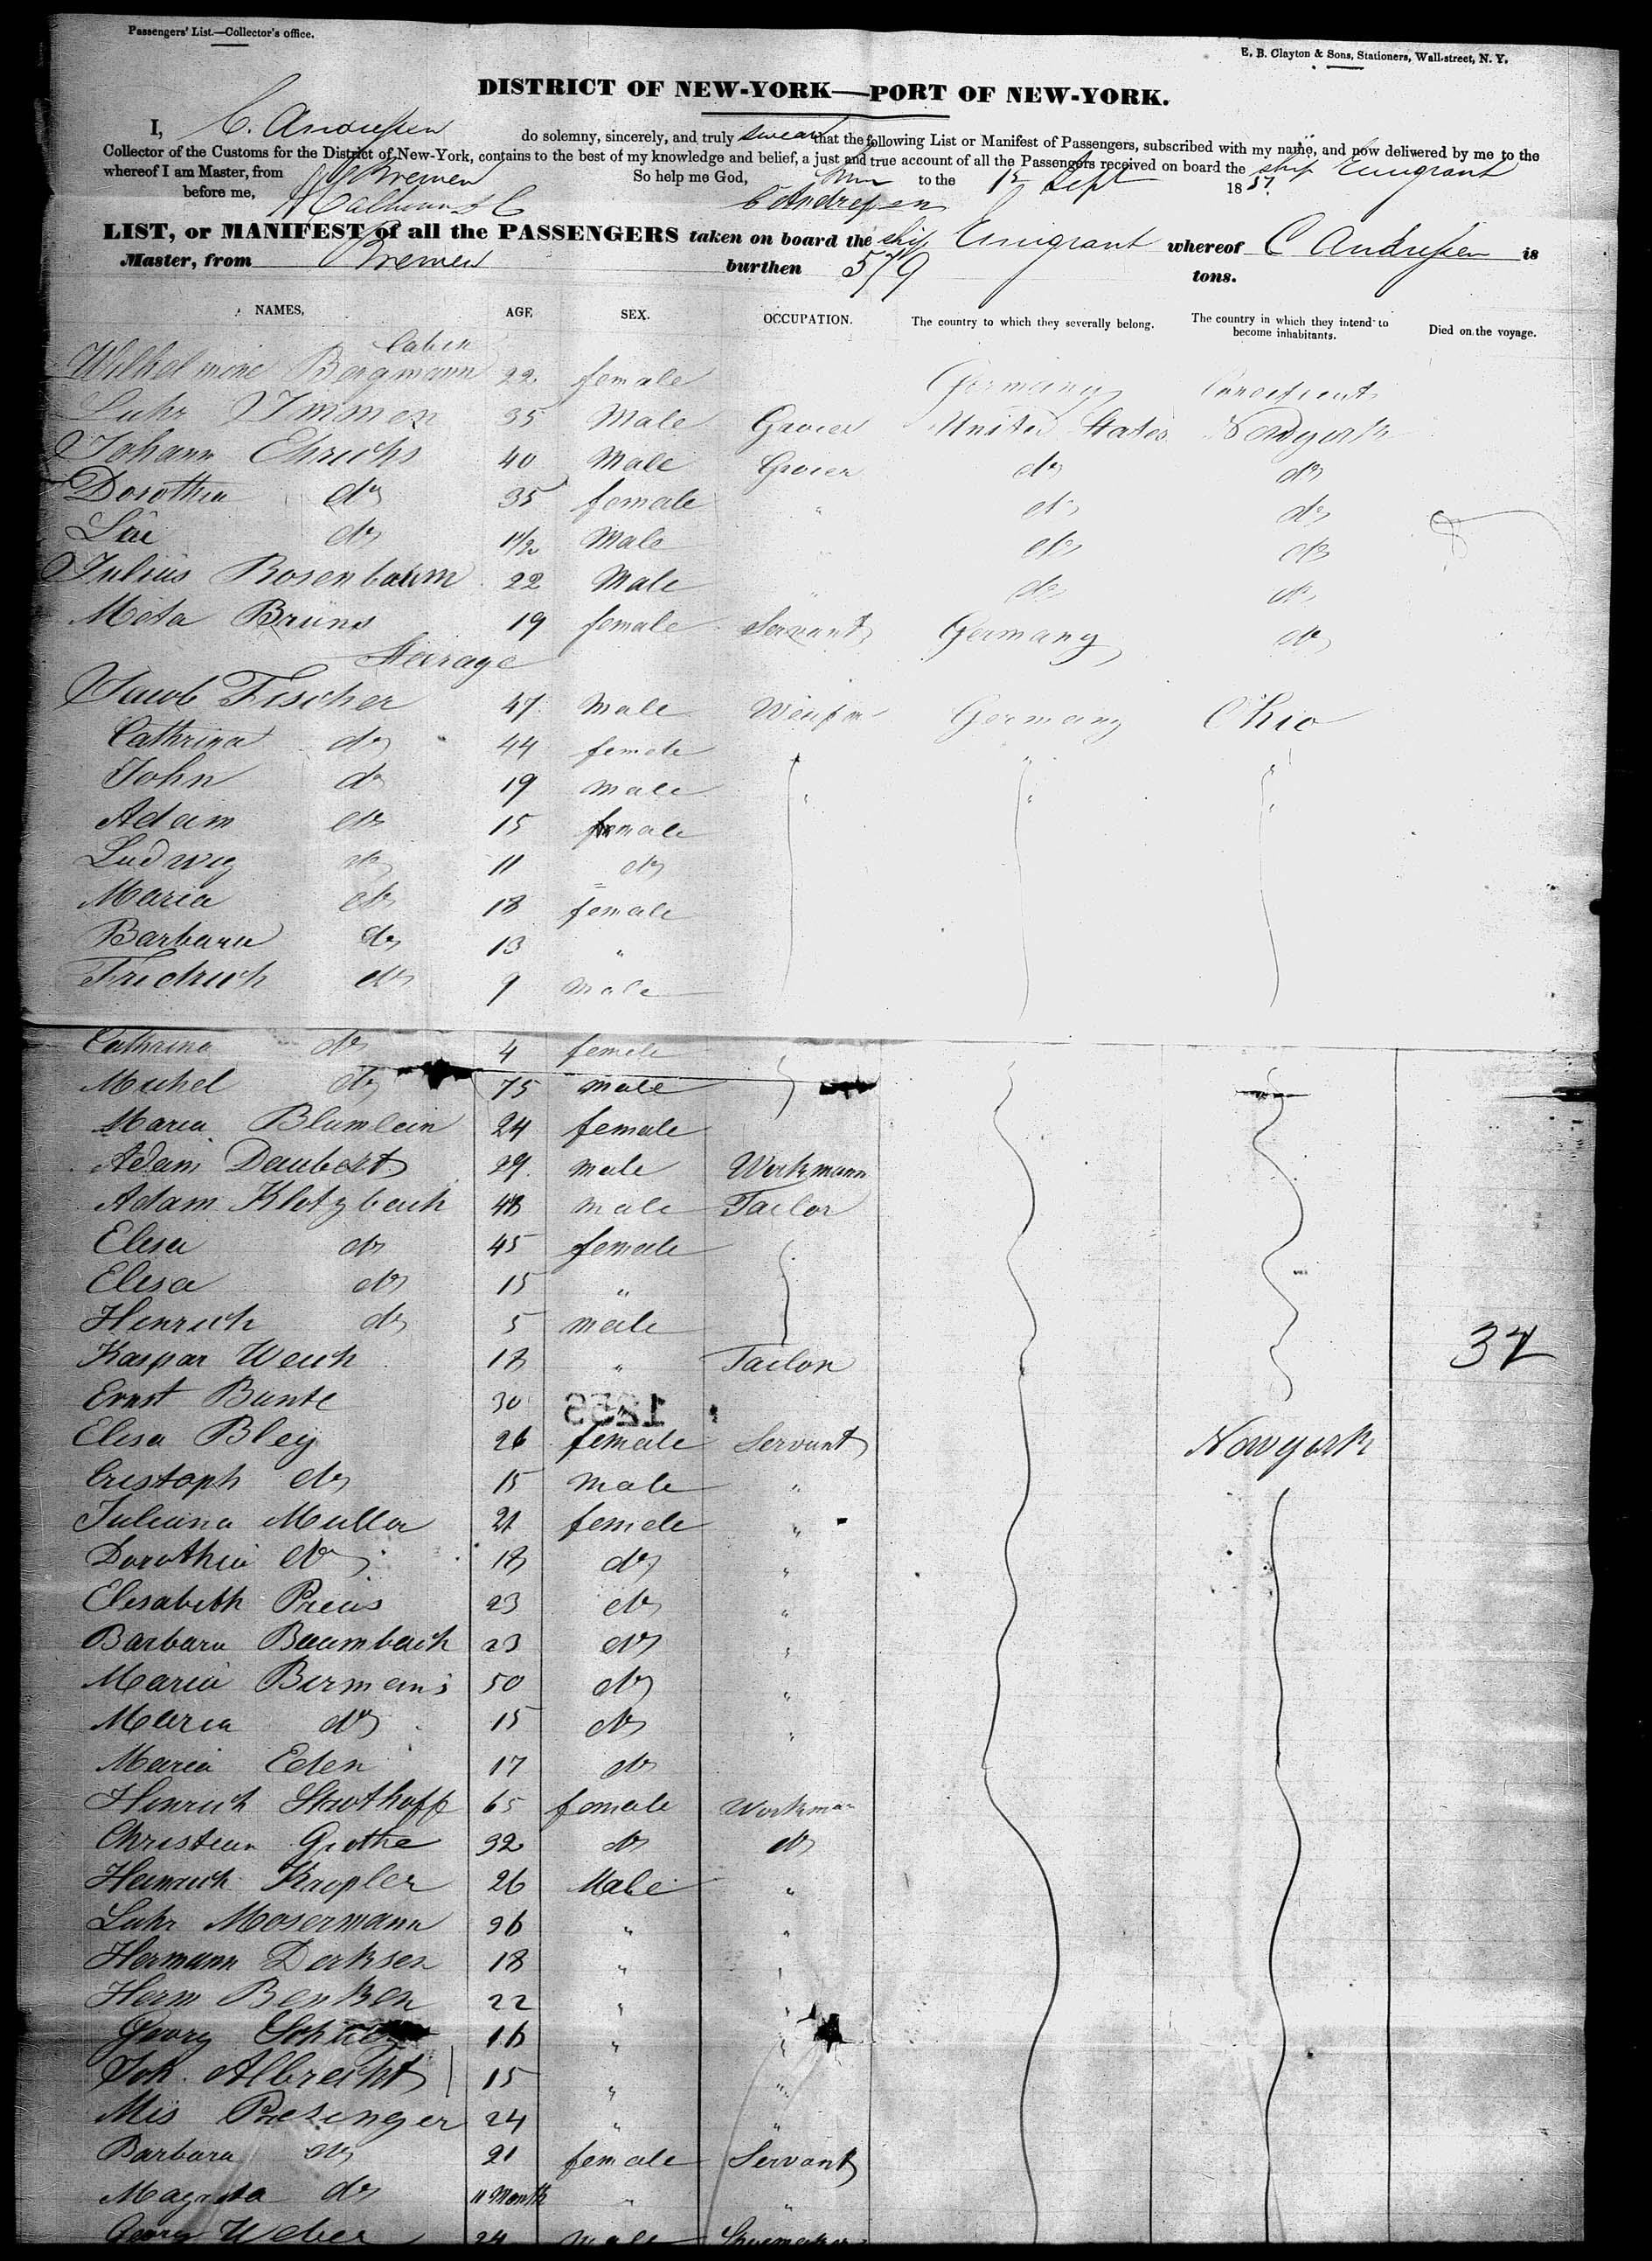 Passengers' List.—Collector's office.
E. B. Clayton & Sons, Stationers, Wall-street, N. Y.
DISTRICT OF NEW-YORK—PORT OF NEW-YORK.
I, C. Andreßen do solemny, sincerely, and truly swear that the following List or Manifest of Passengers, subscribed with my name, and now delivered by me to the
Collector of the Customs for the District of New-York, contains to the best of my knowledge and belief, a just and true account of all the Passengers received on board the ship Emigrant
whereof I am Master, from Bremen So help me God, to the 12 Sept 1857.
before me, C Andreßen
LIST, or MANIFEST of all the PASSENGERS taken on board the ship Emigrant whereof C Andreßen is
Master, from Bremen burthen 579 tons.
NAMES, AGE SEX. OCCUPATION. The country to which they severally belong. The country in which they intend to become inhabitants. Died on the voyage.
Cabin
Wilhelmine Bergmann 22 female Germany
Luhr Immen 35 Male Grocer United States Newyork
Johann Ehrichs 40 Male Grocer do do
Dorothea do 35 female " do do
do 1 1/2 Male " do do
Julius Rosenbaum 22 Male " do do
Meta Bruns 19 female Servant Germany do
Steirage
Jacob Fischer 47 Male Germany Ohio
Cathrina do 44 female " " "
John do 19 male " " "
Adam do 15 male
Ludwig do 11 do
Maria do 18 female
Barbara do 13 "
Fridrich do 9 male
Cathrina do 4 female
Michel do 75 male
Maria Blumlein 24 female
Adam Daubert 29 male Workmann
Adam Klotzbach 48 male Tailor
Elisa do 45 female
Elisa do 15 "
Henrich do 5 male
Kaspar Weich 18 " Tailor
Ernst Bunte 30
1256
Elisa Bley 26 female Servant Newyork
Cristoph do 15 male "
Juliana Muller 21 female "
Dorothea do 18 do "
Elisabeth Preus 23 do "
Barbara Baumbach 23 do "
Maria Birmans 50 do "
Maria do 15 do "
Maria Eden 17 do
Henrich Struthoff 65 female Workman
Christian Grothe 32 do do
Heinrich Kappler 26 Male "
Luhr Mosermann 36 " "
Hermann Derksen 18 " "
Herm Benken 22 " "
Georg 16 " "
Joh. Albrecht 15 " "
Mis Presinger 24 " "
Barbara do 21 female Servant
Magreta do 11 Month " "
Georg Weber 24 male Shoemaker